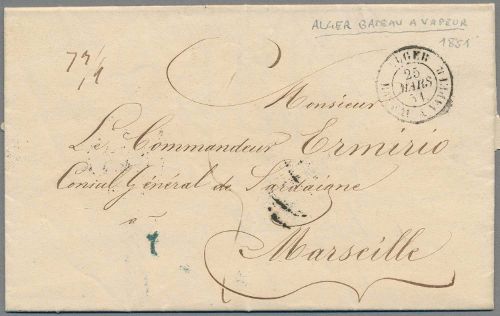 ALGER BATEAU A VAPEUR
1851
ALGER
BATEAU A VAPEUR
25
MARS
51
Monsieur
Le Commandeur Ermirio
Consul Général de Sardaigne
à
Marseille